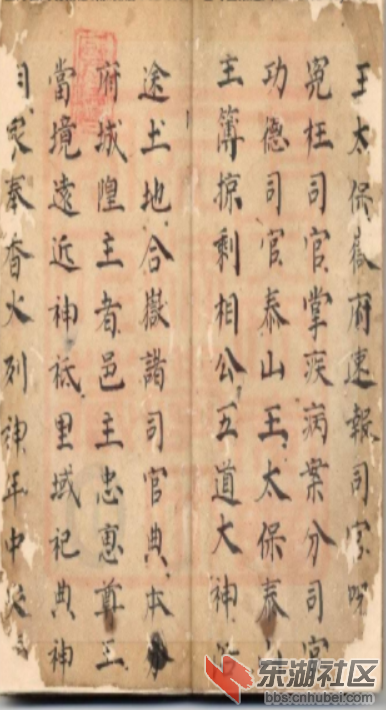 王太保嶽府速報司官
冤枉司官掌疾病案分司官
功德司官泰山王太保泰
主簿掠剩相公五道大神
途土地合嶽諸司官典本
府城隍主者邑主忠惠尊王
當境遠近神祇里域祀典神
家奉香火列神年中
东湖社区
bbs.cnhubei.com